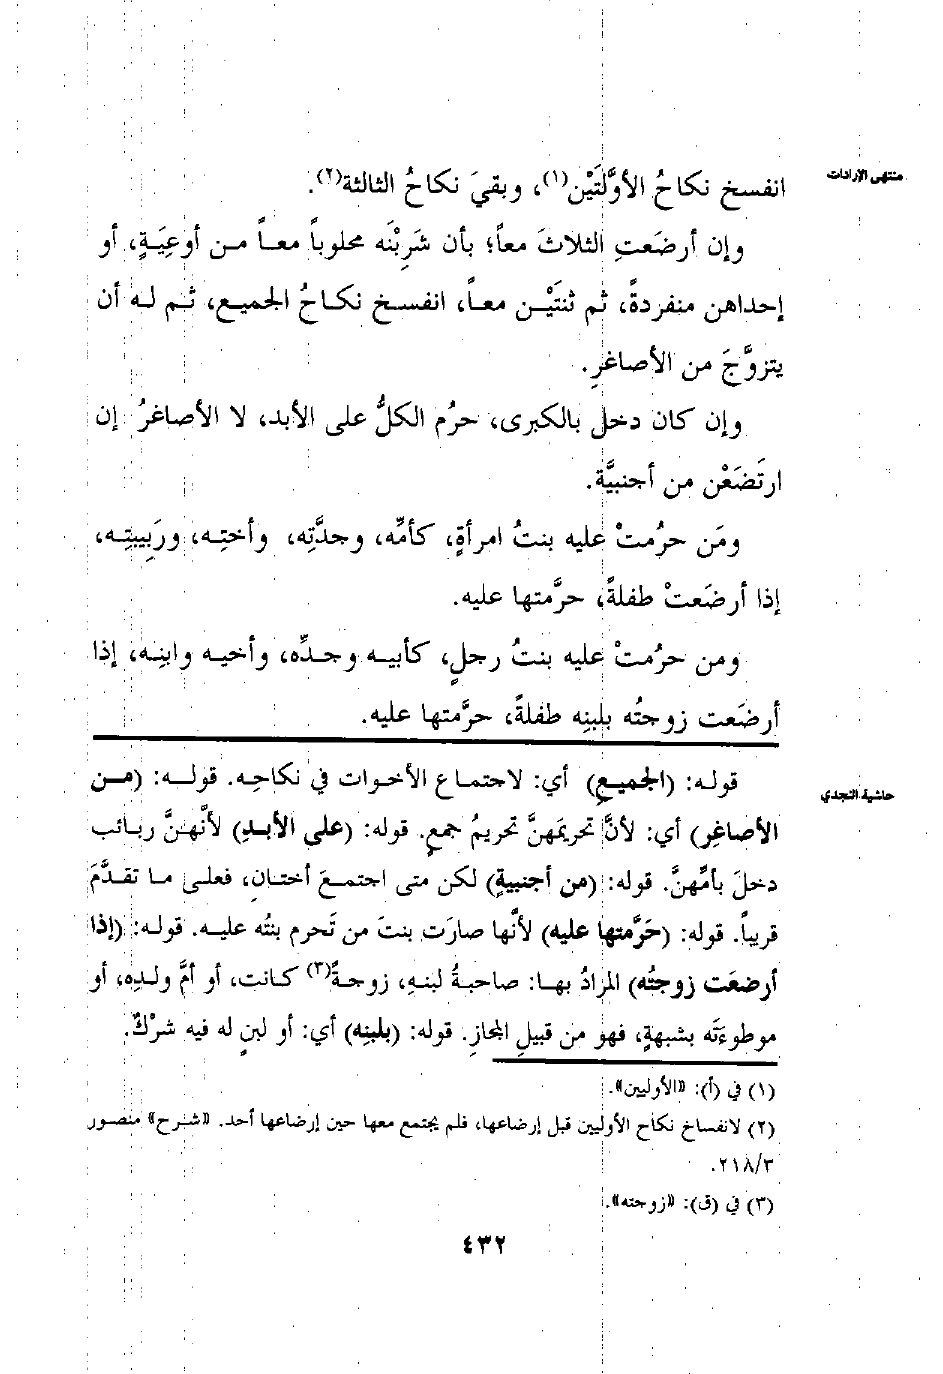 منتهى الإرادات
انفسخ نكاحُ الأوَّلَتَيْن(١)، وبقيَ نكاحُ الثالثة(٢).
وإن أرضَعتِ الثلاثَ معاً؛ بأن شَرِبْنَه محلوباً معـاً مـن أوعِيَـةٍ، أو
إحداهن منفردةً، ثم ثنتَيْـن معـاً، انفسـخ نكـاحُ الجميـع، ثـم لـه أن
يتزوَّجَ من الأصاغرِ.
وإن كان دخل بالكبرى، حرُم الكلُّ على الأبد، لا الأصاغرُ إن
ارتَضَعْن من أجنبيَّة.
ومَن حرُمتْ عليه بنتُ امرأةٍ، كأمِّه، وجدَّتِه، وأختِـه، ورَبِيبتِـه،
إذا أرضَعتْ طفلةً، حرَّمتها عليه.
ومن حرُمتْ عليه بنتُ رجلٍ، كأبيـه وجـدِّه، وأخيـه وابنِـه، إذا
أرضَعت زوجتُه بلبنِه طفلةً، حرَّمتها عليه.
حاشية النجدي
قولـه: (الجميـعِ) أي: لاجتماع الأخـوات في نكاحِـه. قولـه: (مـن
الأصاغِر) أي: لأنَّ تحريمَهنَّ تحريمُ جمعٍ. قوله: (على الأبـدِ) لأنَّهـنَّ ربـائب
دخلَ بأمِّهنَّ. قوله: (من أجنبيةٍ) لكن متى اجتمـعَ أختـانِ، فعلـى مـا تقـدَّمَ
قريباً. قوله: (حَرَّمتها عليه) لأنَّها صارَت بنتَ من تَحرم بنتُه عليـه. قولـه: (إذا
أرضعَت زوجتُه) المرادُ بهـا: صاحبـةُ لبنـهِ، زوجـةً(٣) كـانت، أو أمَّ ولـدِه، أو
موطوءَتَه بشبهةٍ، فهو من قبيلِ المجازِ. قوله: (بلبنِه) أي: أو لبنٍ له فيه شرْكٌ.
(١) في (أ): «الأوليين».
(٢) لانفساخ نكاح الأوليين قبل إرضاعها، فلم يجتمع معها حين إرضاعها أحد. «شـرح» منصـور
٢١٨/٣.
(٣) في (ق): «زوجته».
٤٣٢